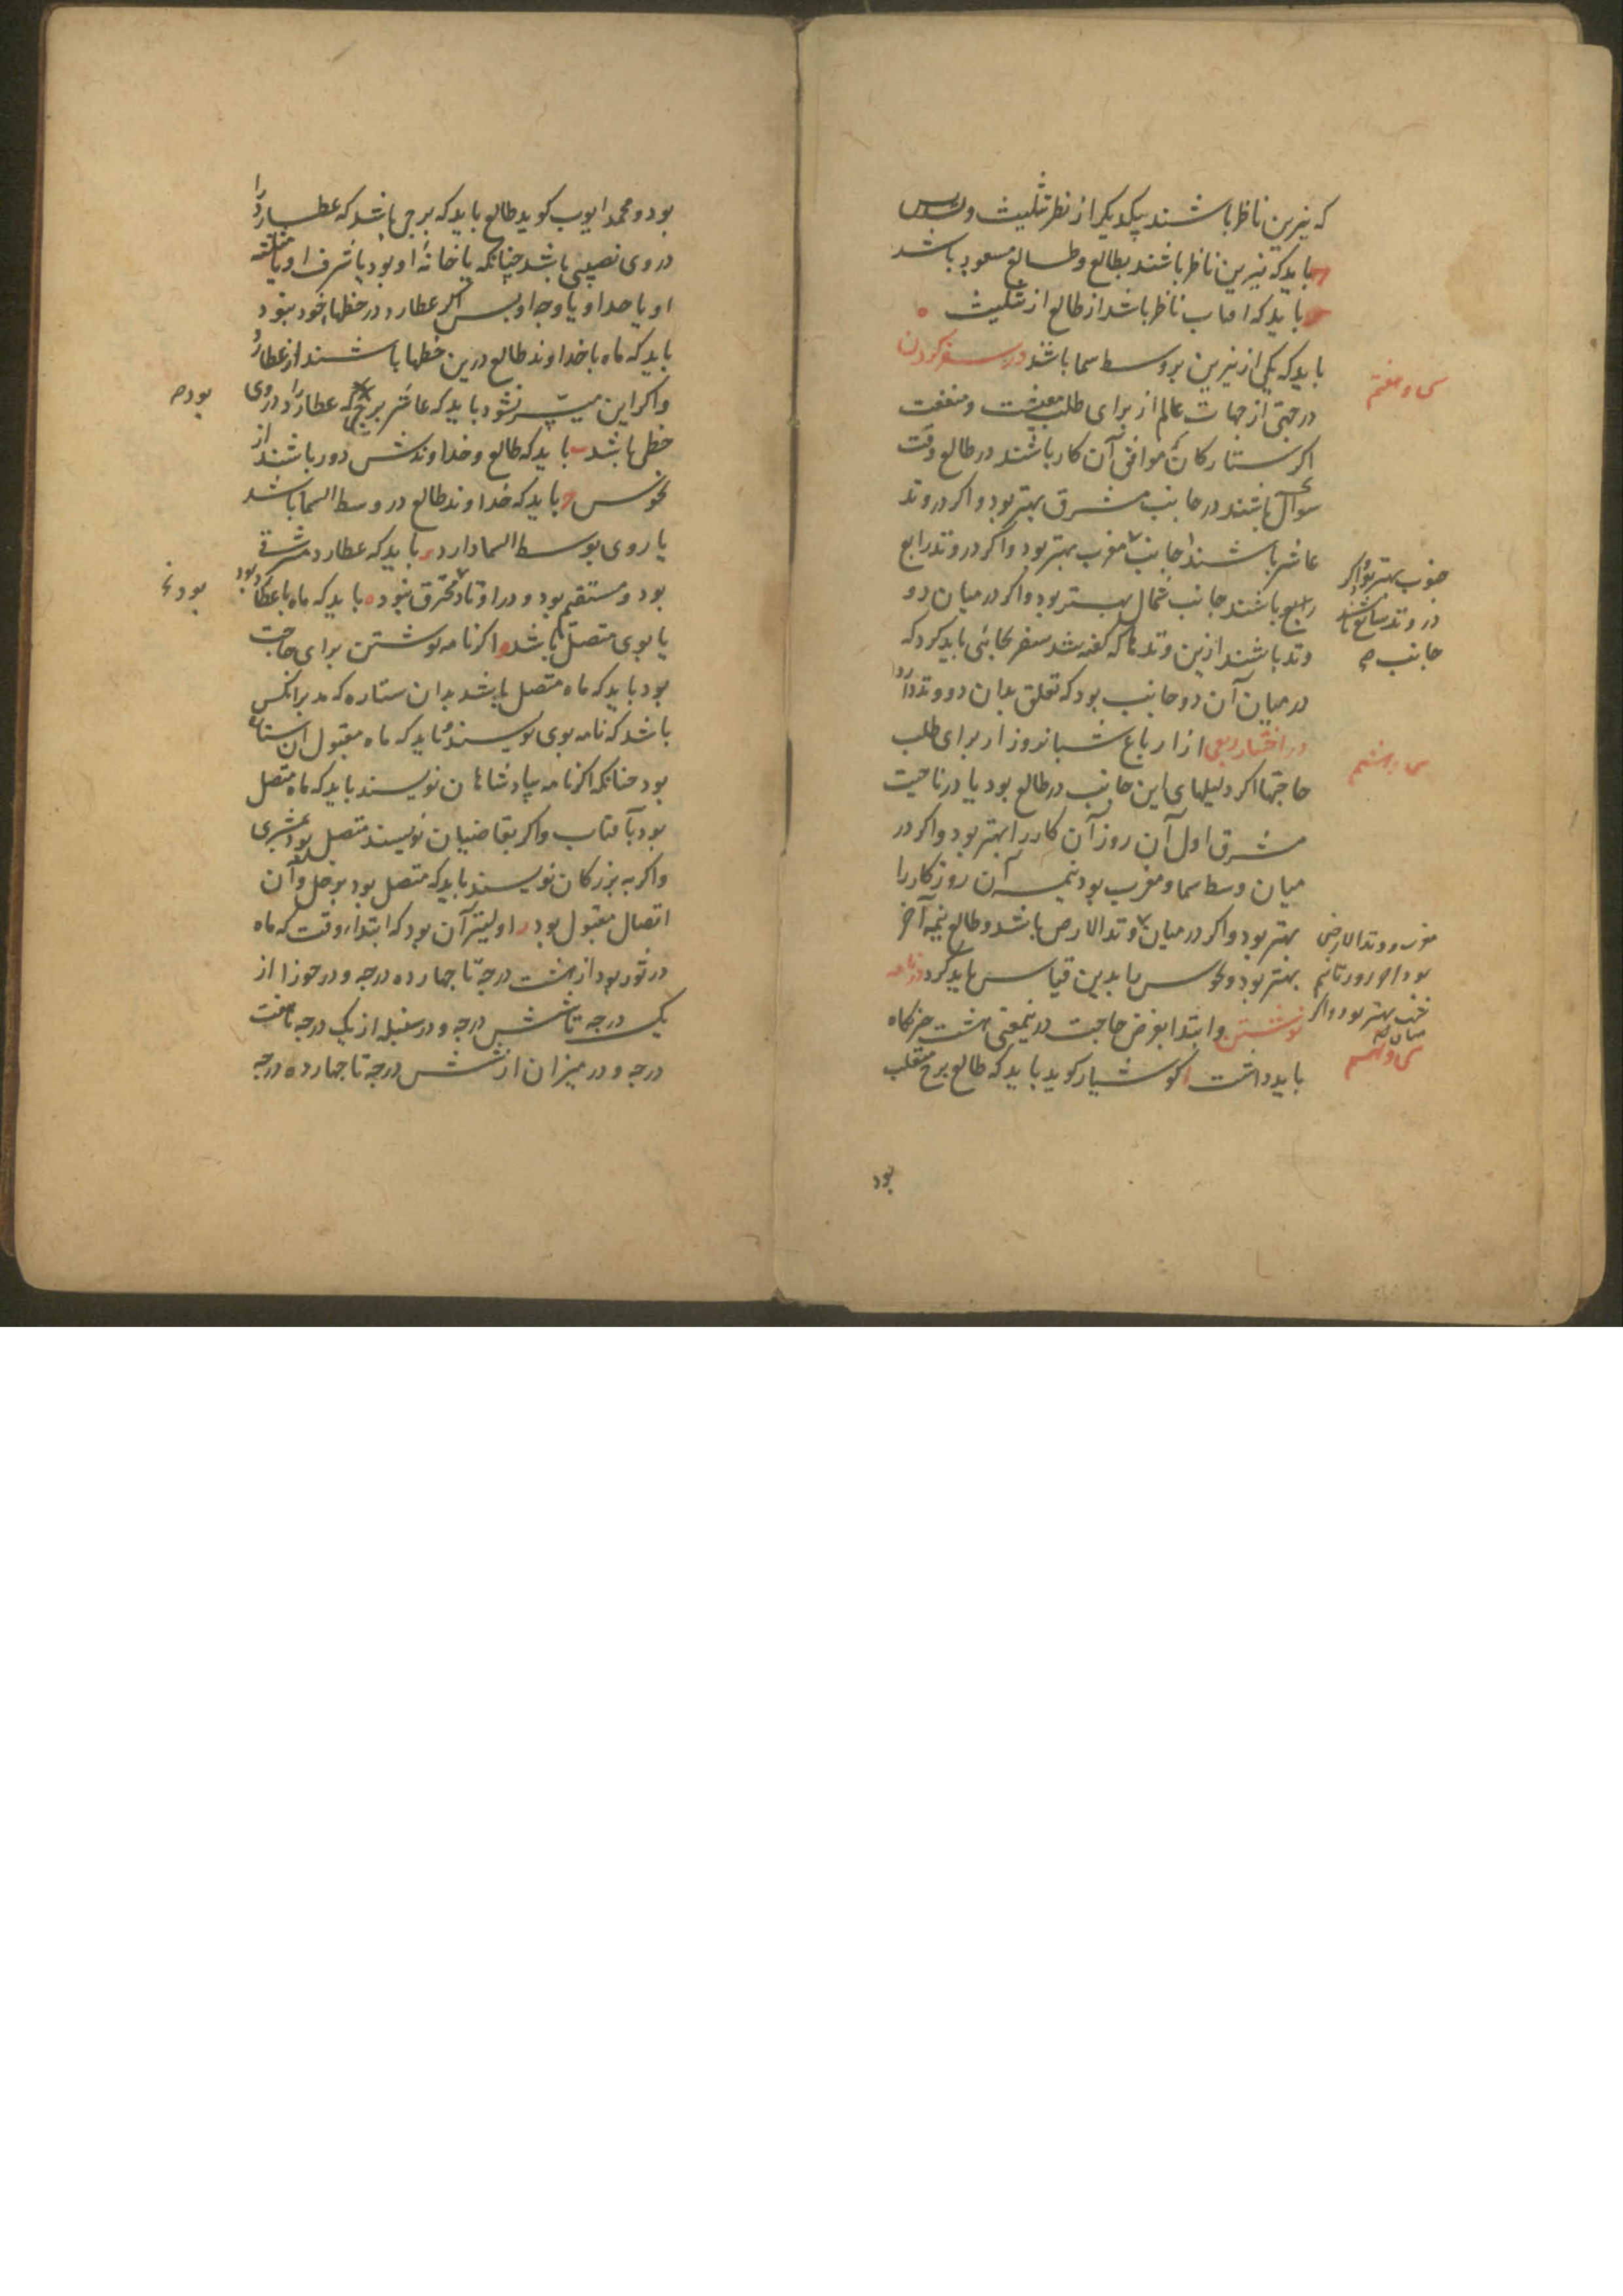 که نیرین ناظر باشند بیکدیکر از نظر تثلیث و تسدیس
باید که نیرین ناظر باشند بطالع و طالع مسعود باشد
باید که افتاب ناظر باشد از طالع از تثلیث ه
باید که یکی از نیرین بر وسط سما باشد در سفر کردن
سی و هفتم
در جهتی از جهات عالم از برای طلب معیشت و منفعت
اکر ستارکان موافق آن کار باشند در طالع وقت
سوال باشند در جانب مشرق بهتر بود و اکر در وتد
عاشر باشند جانب مغرب بهتر بود و اکر در وتد رابع
جنوب بهتر بود و اکر
در وتد سابع باشند
جانب صح
رابع باشند جانب شمال بهتر بود و اکر در میان دو
وتد باشند ازین وتدها که کفته شد سفر بجانبی باید کرد که
در میان آن دو جانب بود که تعلق بدان دو وتد دارد
در اختیار ربعی از ارباع شبانروز از برای طلب
سی و هشتم
حاجتها اکر دلیلهای این جانب در طالع بود یا در ناحیت
مشرق اول آن روز آن کار را بهتر بود و اکر در
میان وسط سما و مغرب بود نیمه آن روز کار را
بهتر بود و اکر در میان وتد الارض باشد و طالع نیمه آخر
مغرب و وتد الارض
بود آخر روز تا نیم
شب بهتر بود و اکر
میان صح
بهتر بود و نحوس ما بدین قیاس باید کرد در نامه
نوشتن و ابتدا بغرض حاجت در نیمعنی هشت چیز نکاه
سی و نهم
باید داشت ا کوشیار کوید باید که طالع برج منقلب
بود
بود و محمد ایوب کوید طالع باید که برجی باشد که عطارد را
در وی نصیبی باشد چنانکه یا خانهٔ او بود یا شرف او یا مثلثه
او یا حد او یا وجه او بس اکر عطارد در حظهای خود نبود
باید که ماه با خداوند طالع درین حظها باشند از عطارد
و اکر این میسّر نشود باید که عاشر برجی که عطارد را در وی
بود صح
حظی باشد ب باید که طالع و خداوندش دور باشند از
نحوس ج باید که خداوند طالع در وسط السما باشد
یا روی بوسط السما دارد د باید که عطارد مشرقی
بود و مستقیم بود و در اوتاد و محترق نبود ه باید که ماه با عطارد بود
یا بوی متصل باشد و اکر نامه نوشتن برای حاجت
بود باید که ماه متصل باشد بدان ستاره که مدبر انکس
باشد که نامه بوی نویسند و باید که ماه مقبول ان ستاره
بود چنانکه اکر نامه بپادشاهان نویسند باید که ماه متصل
بود بآفتاب و اکر بقاضیان نویسند متصل بود بمشتری
و اکر به بزرکان نویسند باید که متصل بود بزحل و آن
اتصال مقبول بود ز اولیتر آن بود که ابتداء وقت که ماه
در ثور بود از هشت درجه تا چهارده درجه و در جوزا از
یک درجه تا شش درجه و در سنبله از یک درجه تا هفت
درجه و در میزان از شش درجه تا چهارده درجه